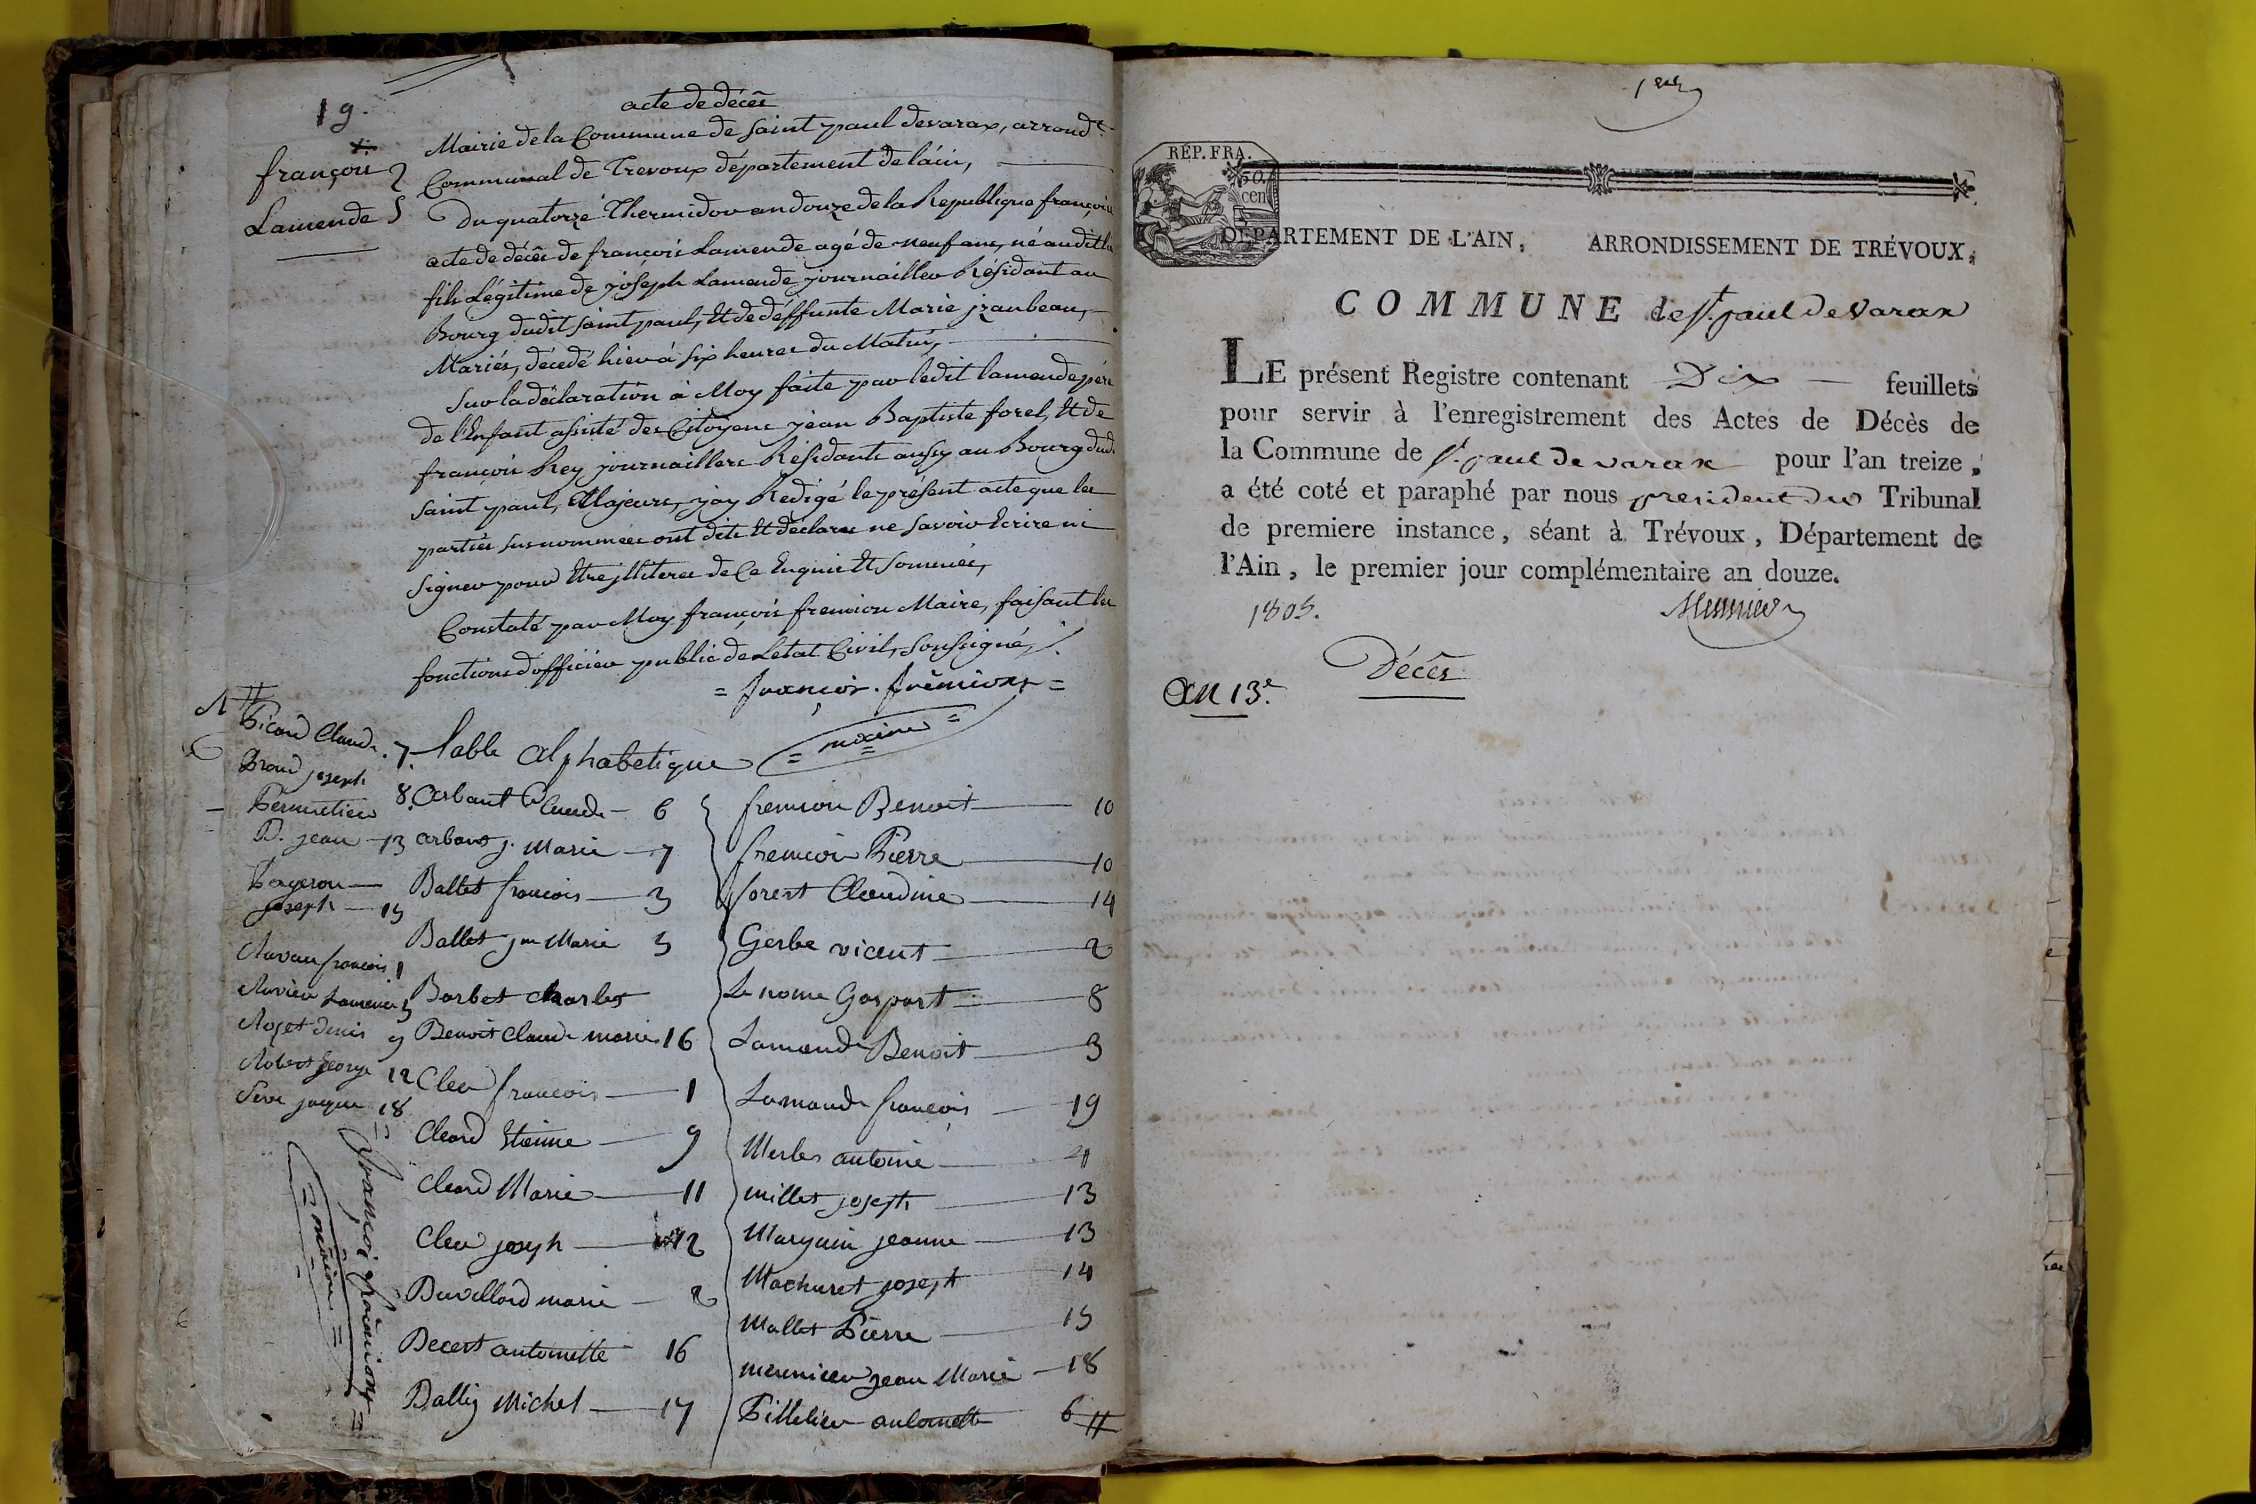 19.
françois
Lamende
acte de décès
Mairie de la Commune de saint paul devarax, arrond.t
Communal de Trevoux département de láin,
Du quatorze Thermidor an douze de la Republique françoise
acte de décès de françois Lamende agé de neuf ans, né audit lieu
fils Légitime de joseph Lamende journaillier Résidant au
Bourg dudit saint paul, Et de déffunte Marie
Mariés, décedé hier à six heures du Matin,
Sur la déclaration à Moy faite par ledit lamende pére
de l'Enfant assisté des Citoyens jean Baptiste forel, Et de
françois Rey journailliers Résidants aussy au Bourg dud.
saint paul, Majeurs, j'ay Redigé le présent acte que les
parties susnommées ont dits Et déclaré ne savoir Ecrire ni
signer pour Etre jlliterés de Ce Enquis Et Sommés,
Constaté par Moy françois fremion Maire, faisant les
fonctions d'officier public de Létat Civil, Soussigné,
= françois . frémion =
= maire =
Table Alphabetique
Picard Claude . 7.
Braud joseph 8.
P. jean 13
joseph 15
françois 1
Roset denis 9
Robert George 12
Seve jaque 18
= françois frémion =
= maire =
Arbant Claude 6
Arbant j. Marie 7
Ballet francois 3
Ballet jn Marie 5
Barbet charles
Benoit Claude marie 16
Cler francois 1
Cleard Etienne 9
Cleard Marie 11
Cler joseph 12
Duvillard marie 2
Decert antoinette 16
Dallig Michel 17
fremion Benoit 10
fremion Pierre 10
forest Claudine 14
Gerbe vicent 2
Le nome Gaspart 8
Lamande Benoit 3
Lamande françois 19
Merles antoine 4
millet joseph 13
Marguin jeanne 13
Machuret joseph 14
Mallet Pierre 15
meunier jean Marie 18
Pittelier antoinette 6
1er
RÉP. FRA.
50
cen
DÉPARTEMENT DE L'AIN, ARRONDISSEMENT DE TRÉVOUX,
COMMUNE de St. paul de Varax
LE présent Registre contenant Dix feuillets
pour servir à l'enregistrement des Actes de Décès de
la Commune de St. paul de varax pour l'an treize,
a été coté et paraphé par nous president du Tribunal
de premiere instance, séant à Trévoux, Département de
l'Ain, le premier jour complémentaire an douze.
1805.
Décès
An 13e.